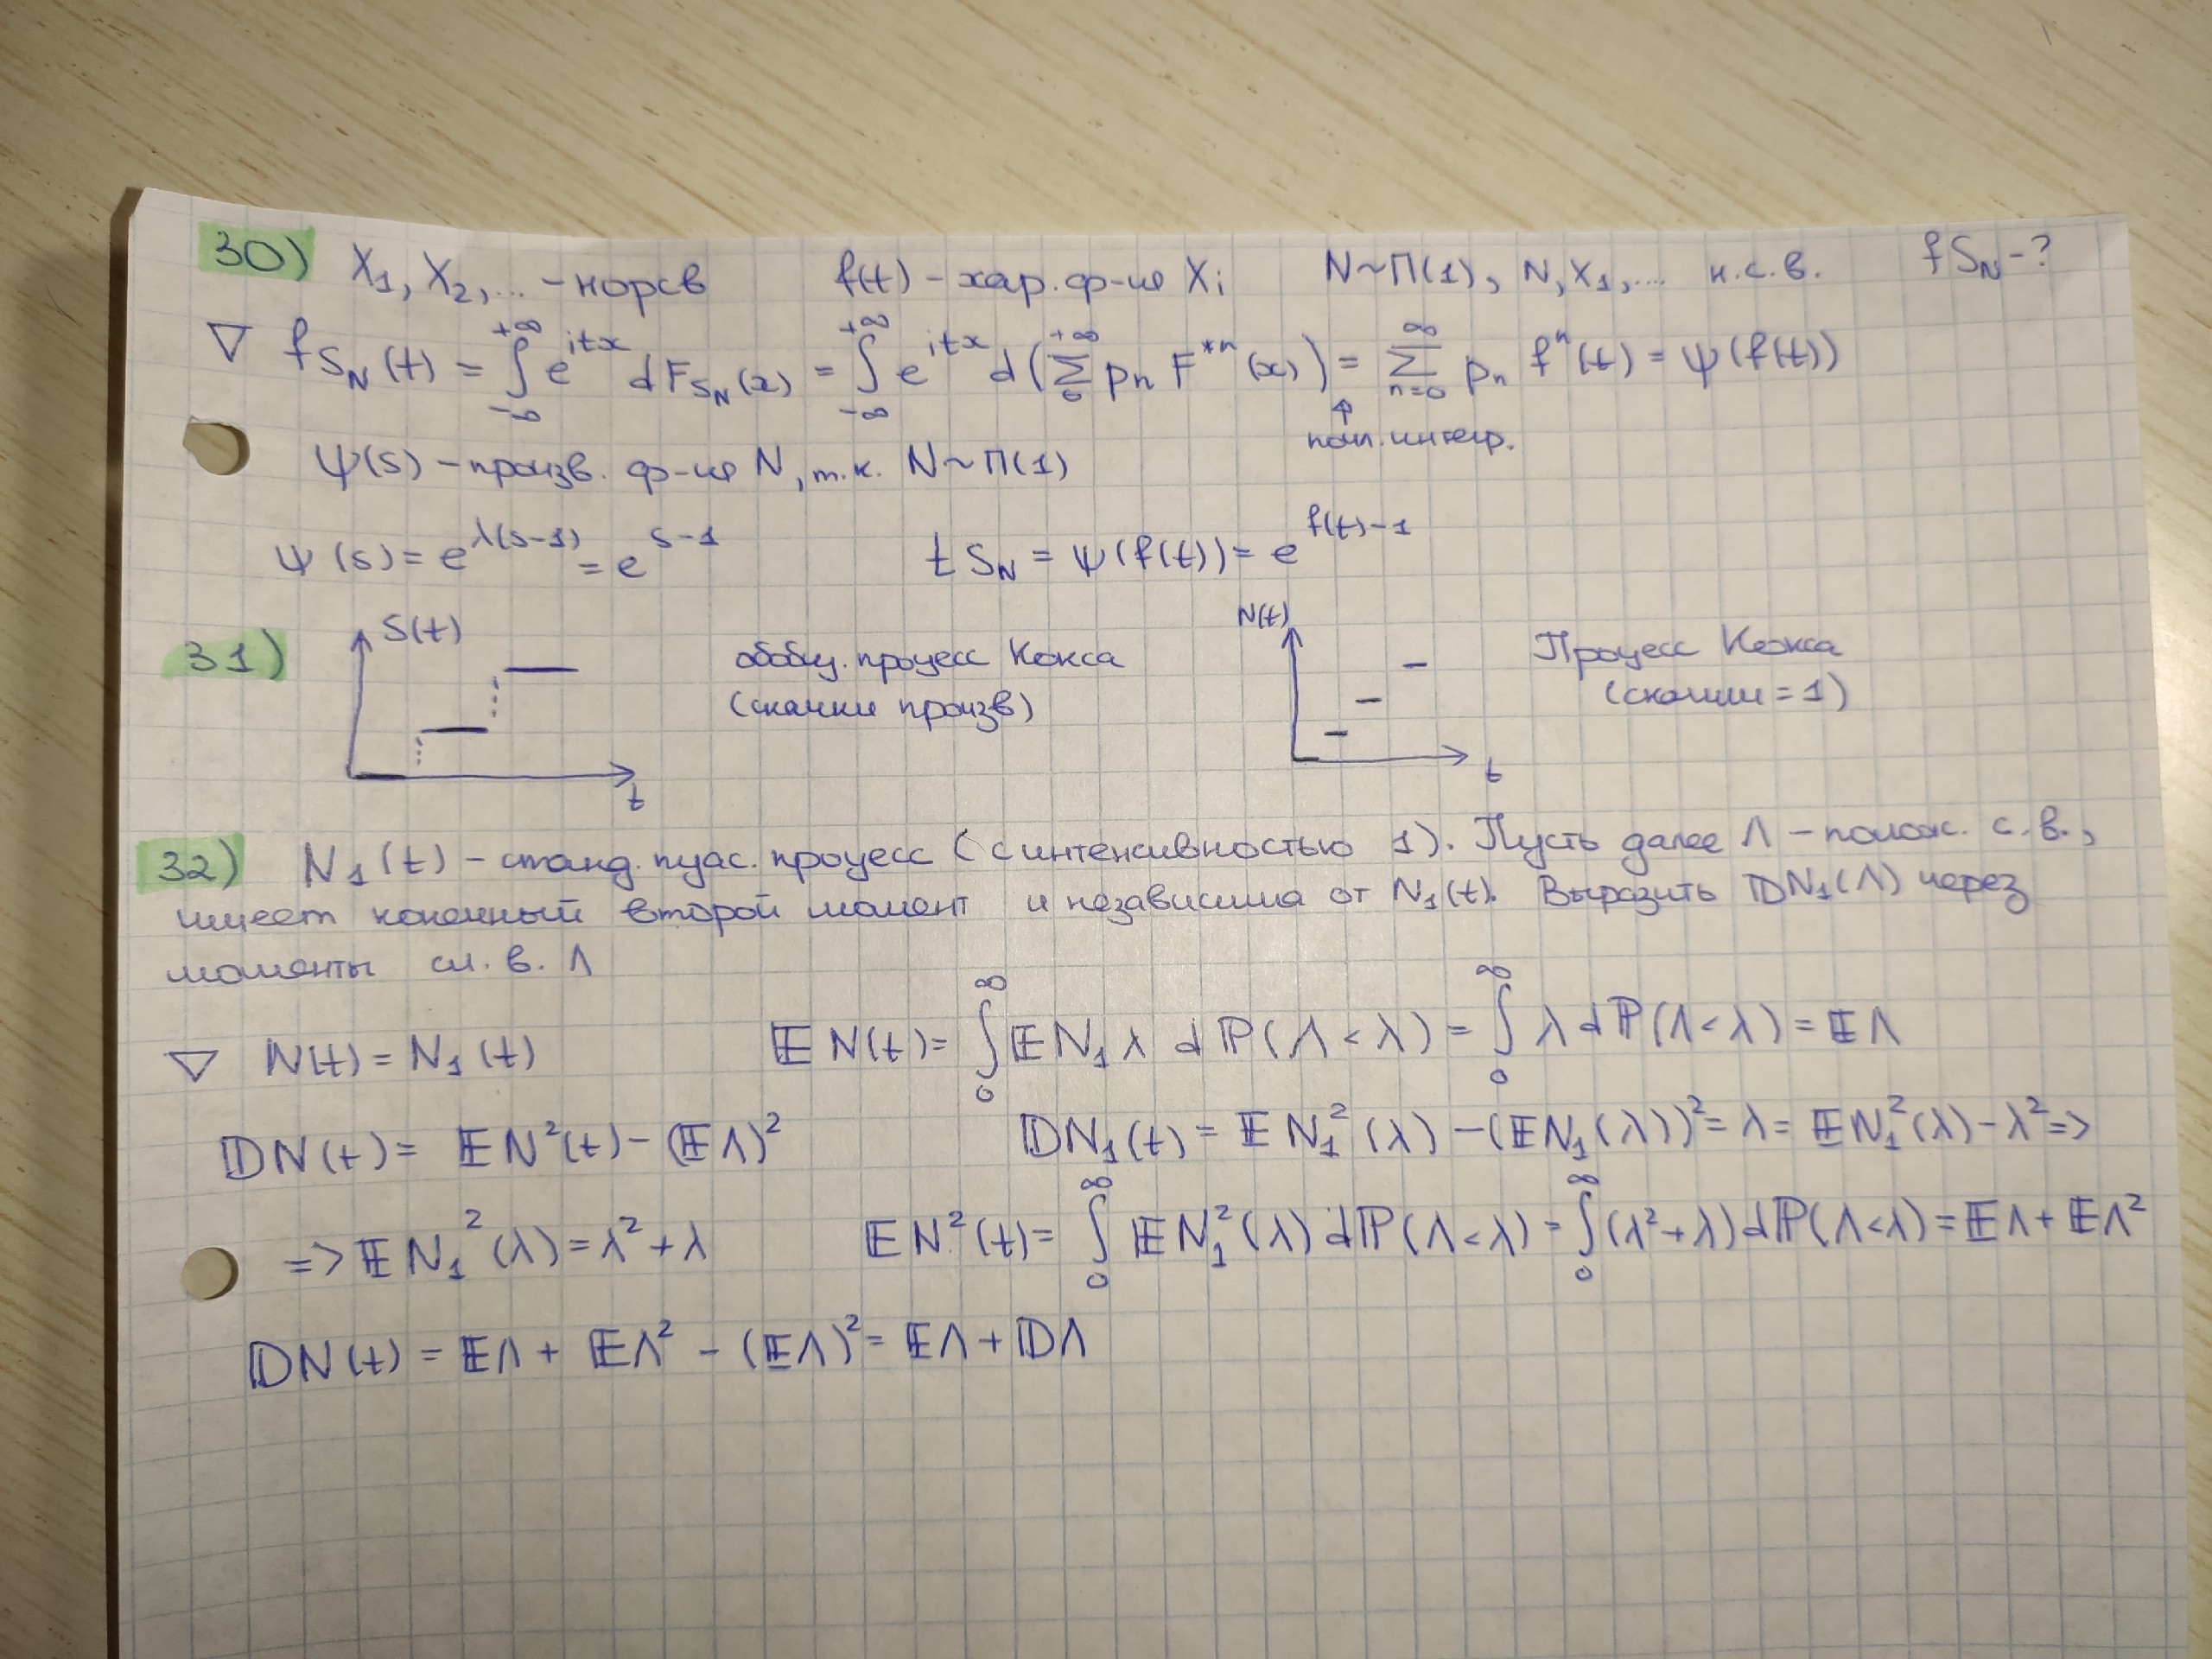 30) X₁, X₂,... - норсв f(t) - хар. ф-ия Xᵢ N~П(1), N, X₁,... н.с.в. f S_N - ?
▽ f_{S_N}(t) = ∫_{-∞}^{+∞} e^{itx} dF_{S_N}(x) = ∫_{-∞}^{+∞} e^{itx} d(∑_{0}^{+∞} pₙ F^{*n}(x)) = ∑_{n=0}^{∞} pₙ fⁿ(t) = ψ(f(t))
↑
почл. интегр.
ψ(s) - произв. ф-ия N, т.к. N~П(1)
ψ(s) = e^{λ(s-1)} = e^{s-1} f S_N = ψ(f(t)) = e^{f(t)-1}
31) S(t) t обобщ. процесс Кокса N(t) t Процесс Кокса
(скачки произв) (скачки = 1)
32) N₁(t) - станд. пуас. процесс (с интенсивностью 1). Пусть далее Λ - полож. с.в.,
имеет конечный второй момент и независима от N₁(t). Выразить 𝔻N₁(Λ) через
моменты сл. в. Λ
▽ N(t) = N₁(t) 𝔼N(t) = ∫_{0}^{∞} 𝔼N₁λ dℙ(Λ<λ) = ∫_{0}^{∞} λ dℙ(Λ<λ) = 𝔼Λ
𝔻N(t) = 𝔼N²(t) - (𝔼Λ)² 𝔻N₁(t) = 𝔼N₁²(λ) - (𝔼N₁(λ))² = λ = 𝔼N₁²(λ) - λ² =>
=> 𝔼N₁²(λ) = λ² + λ 𝔼N²(t) = ∫_{0}^{∞} 𝔼N₁²(λ) dℙ(Λ<λ) = ∫_{0}^{∞} (λ²+λ) dℙ(Λ<λ) = 𝔼Λ + 𝔼Λ²
𝔻N(t) = 𝔼Λ + 𝔼Λ² - (𝔼Λ)² = 𝔼Λ + 𝔻Λ